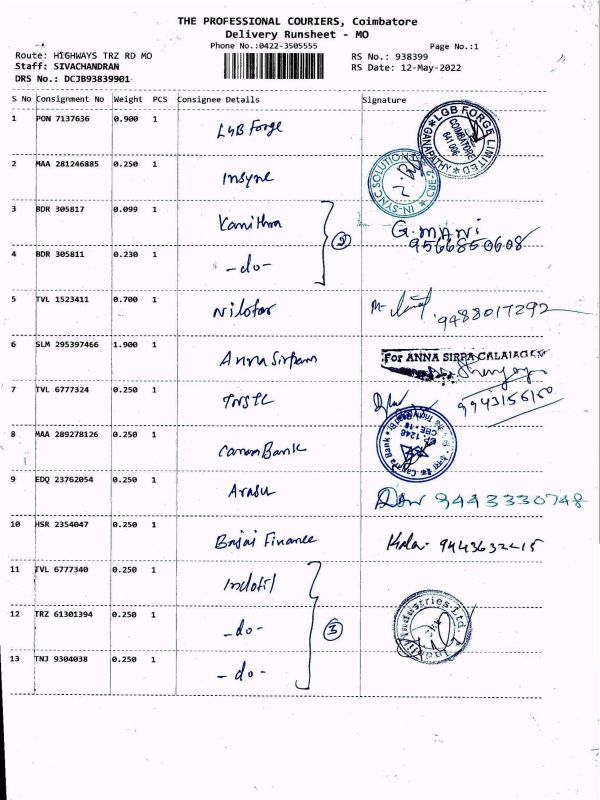 THE PROFESSIONAL COURIERS, Coimbatore
Delivery Runsheet - MO
Phone No.:0422-3505555
Page No.:1
Route: HIGHWAYS TRZ RD MO
RS No.: 938399
Staff: SIVACHANDRAN
RS Date: 12-May-2022
DRS No.: DCJB93839901
S No Consignment No Weight PCS Consignee Details Signature
1 PON 7137636 0.900 1 LGB Forge
LGB FORGE LIMITED
GANAPATHY
COIMBATORE
641 006
2 MAA 281246885 0.250 1 Insync
IN-SYNC SOLUTIONS
CBE-2
3 BDR 305817 0.099 1 Kanithra
G. MANI
9566850608
2
4 BDR 305811 0.230 1 -do-
5 TVL 1523411 0.700 1 Nilofar
9488017292
6 SLM 295397466 1.900 1 Anna Sirpam
For ANNA SIRPA CALAIAGEM
7 TVL 6777324 0.250 1 TNSTC
9943156150
8 MAA 289278126 0.250 1 Canara Bank
Canara Bank
DP. 1248
CBE - 18
9 EDQ 23762054 0.250 1 Arasu
9443330748
10 HSR 2354047 0.250 1 Bajaj Finance
Kala. 9443632415
11 TVL 6777340 0.250 1 Indofil
12 TRZ 61301394 0.250 1 -do-
3
Industries Ltd.
13 TNJ 9304038 0.250 1 -do-